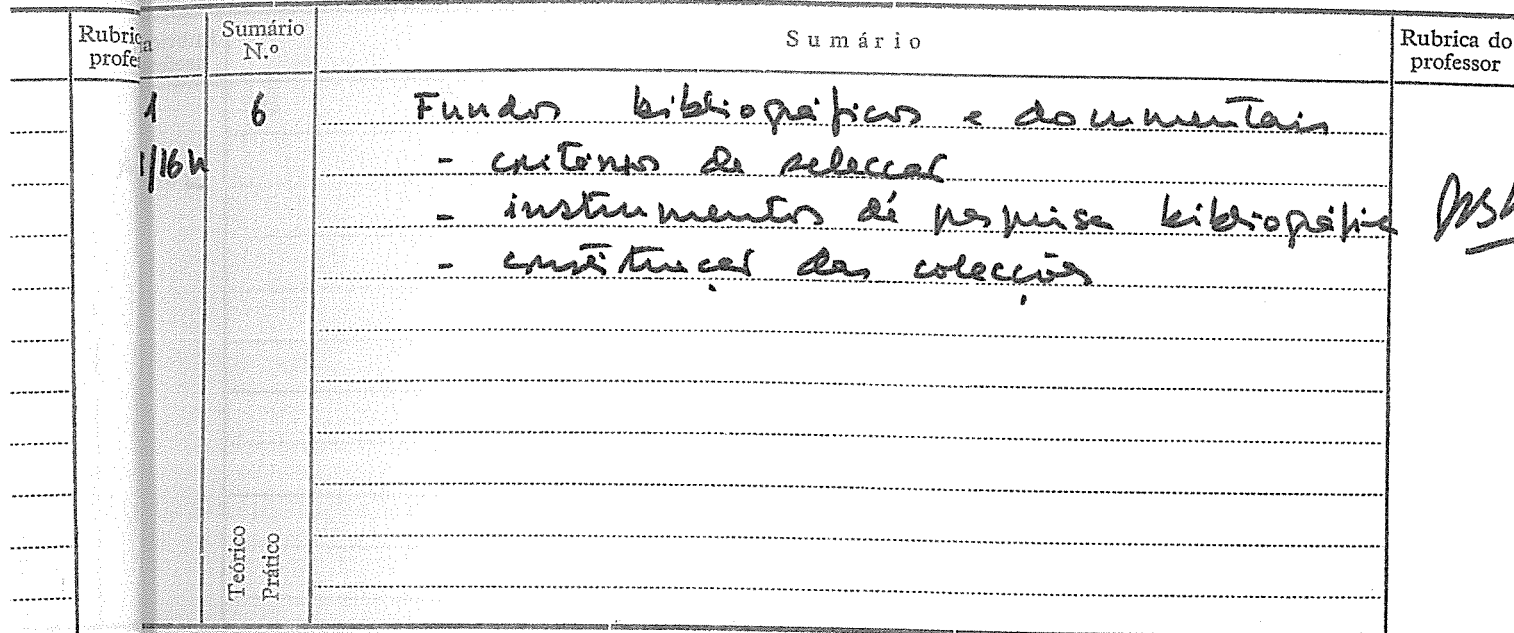 Rubrica
profe
Sumário
N.º
Sumário
Rubrica do
professor
1
6
Fundos bibliográficos e documentais
1/16h
- critérios de selecção
- instrumentos de pesquisa bibliográfica
- constituição das colecções
Teórico
Prático